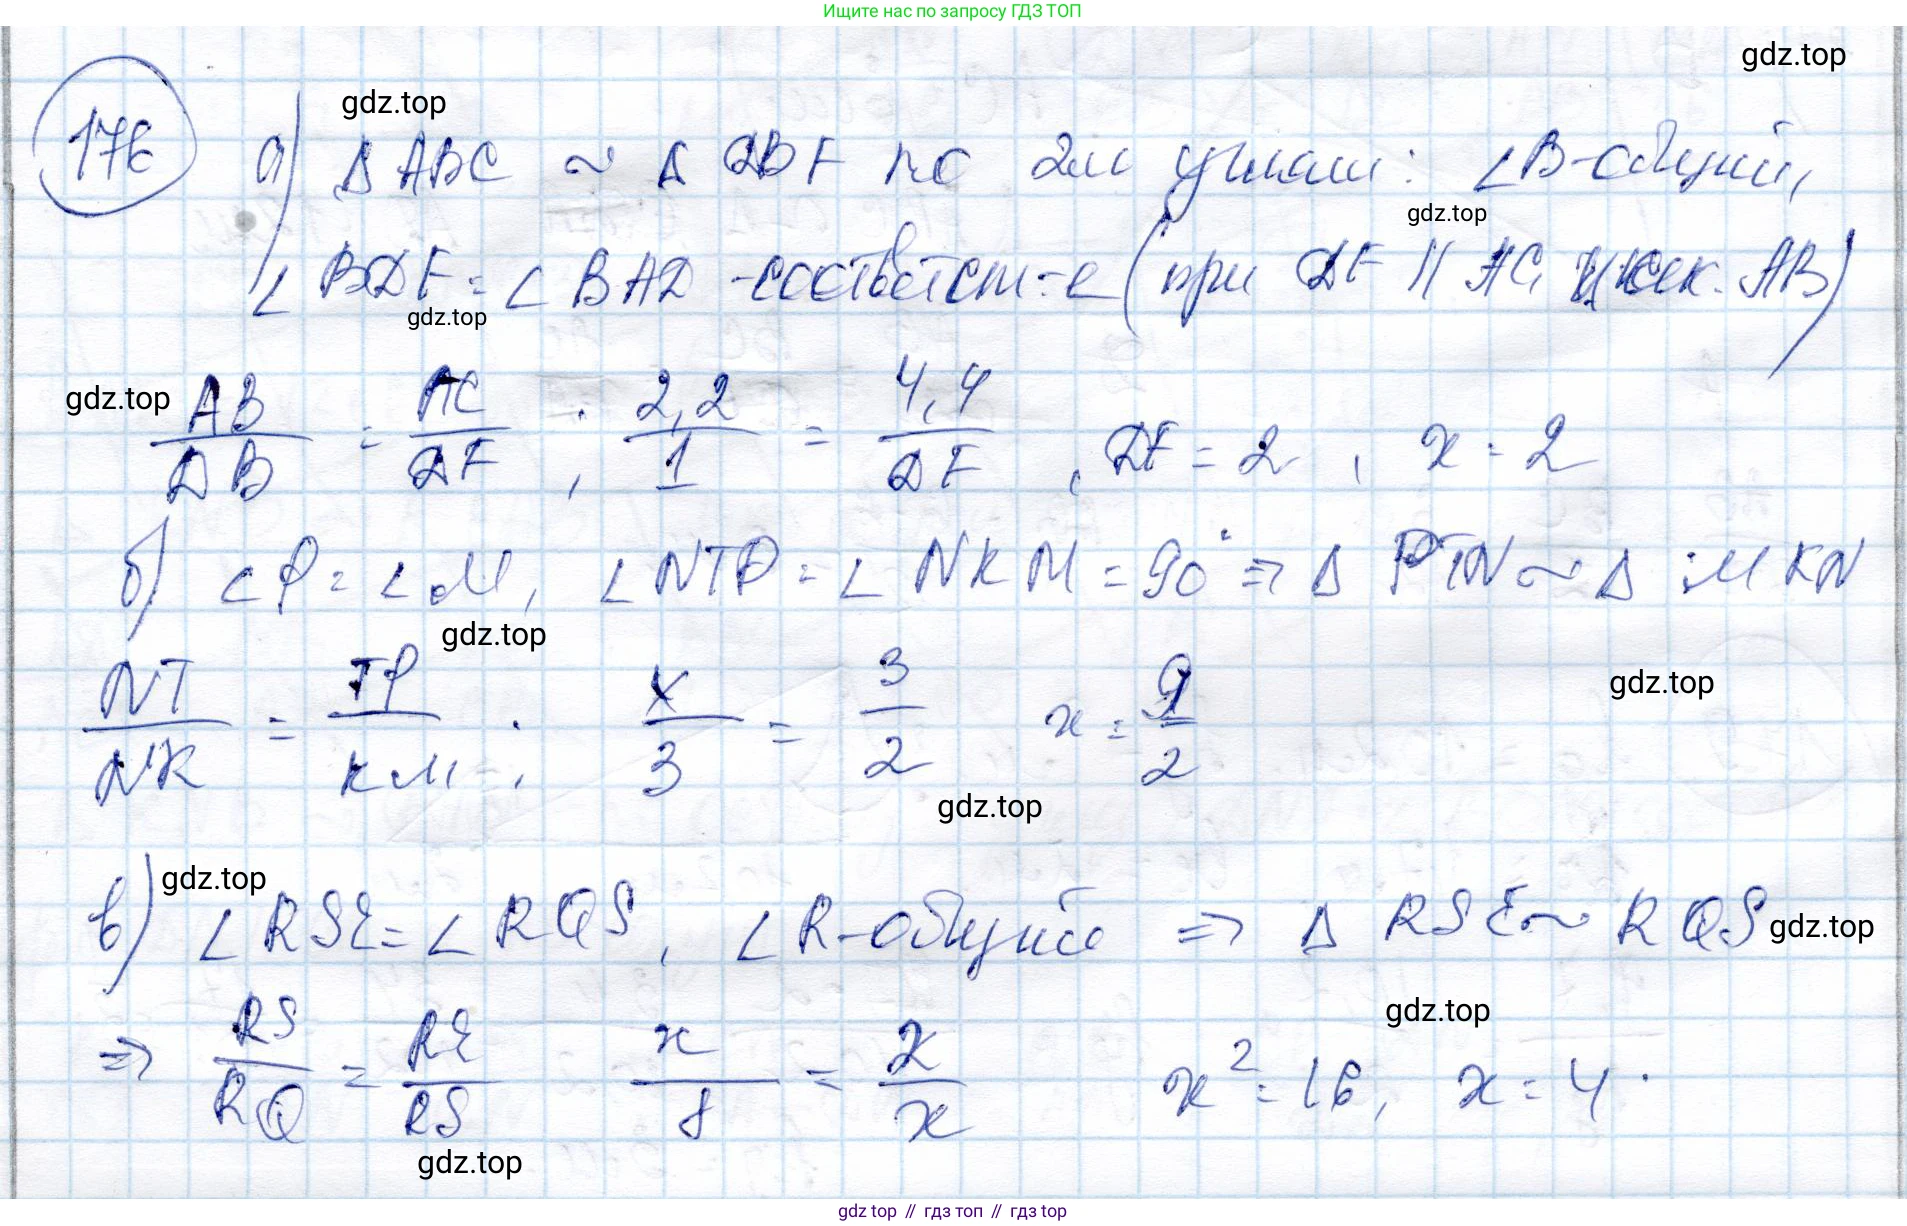 Ищите нас по запросу ГДЗ ТОП
gdz.top
gdz.top
176 а) Δ ABC ~ Δ DBF по 2м углам: ∠B-общий,
gdz.top
∠ BDF = ∠ BAD -соответст-е (при DF || AC и сек. AB)
gdz.top
gdz.top
AB/DB = AC/DF ; 2,2/1 = 4,4/DF , DF = 2 , x = 2
б) ∠P = ∠M, ∠NTP = ∠NKM = 90° ⇒ Δ PTN ~ Δ MKN
gdz.top
NT/NK = TP/KM ; x/3 = 3/2 x = 9/2
gdz.top
gdz.top
gdz.top
в) ∠RSE = ∠RQS, ∠R-общий ⇒ Δ RSE ~ RQS
gdz.top
gdz.top
⇒ RS/RQ = RE/RS x/8 = 2/x x² = 16, x = 4.
gdz.top
gdz top // гдз топ // гдз top